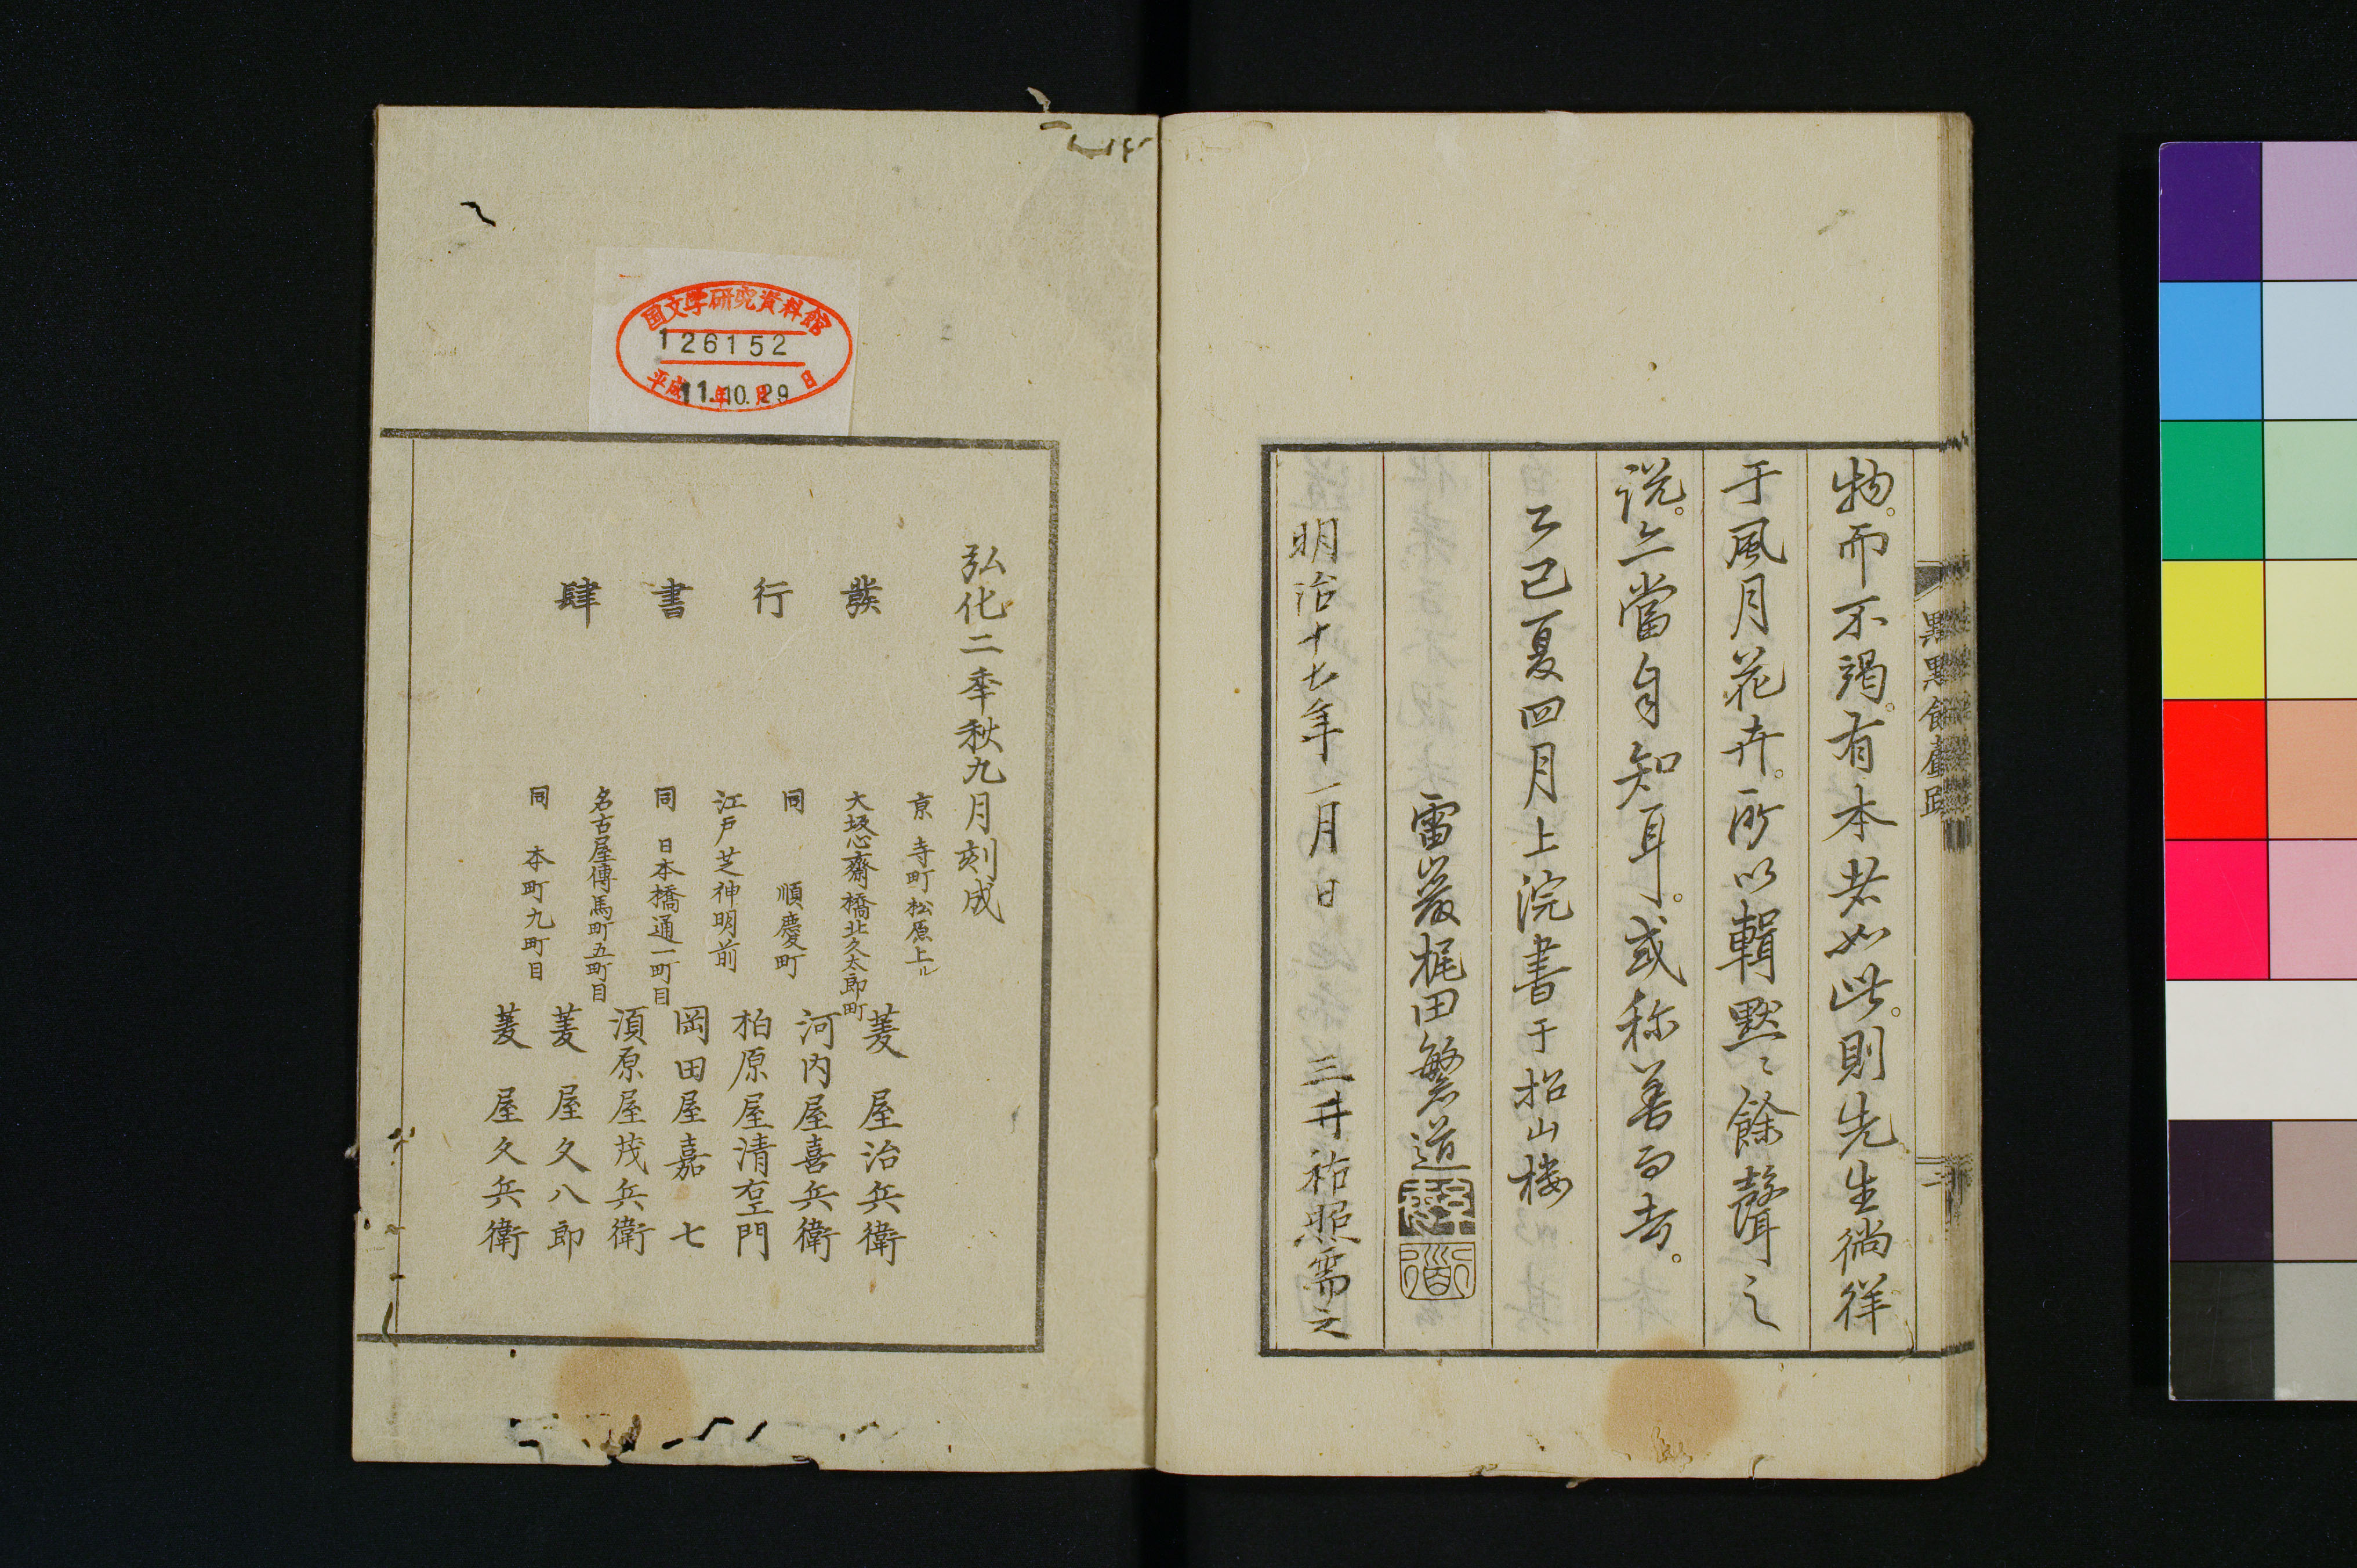 點點餘聲跋
二
物。而不竭。有本者如此。則先生徜徉
于風月花卉。所以輯默〻餘聲之
説。亦當自知耳。或称善而去。
乙巳夏四月上浣書于招山楼
雷巖梶田繁道
明治十七年一月日 三井祐照需之
弘化二季秋九月刻成
發行書肆
京寺町松原上ル 菱屋治兵衛
大坂心齋橋北久太郎町 河内屋喜兵衛
同 順慶町 柏原屋清右衛門
江戸芝神明前 岡田屋嘉七
同 日本橋通一町目 須原屋茂兵衛
名古屋傳馬町五町目 菱屋久八郎
同 本町九町目 菱屋久兵衛
国文学研究資料館
126152
平成11年10月29日